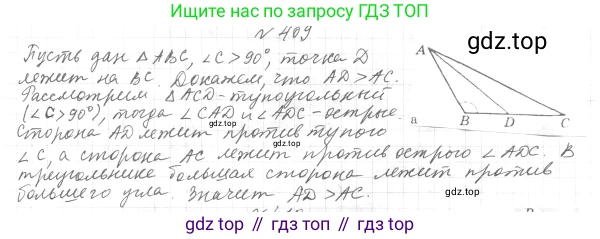 Ищите нас по запросу ГДЗ ТОП
N 409
gdz.top
Пусть дан △ABC, ∠C>90°, точка D
лежит на BC. Докажем, что AD>AC.
Рассмотрим △ACD-тупоугольный
(∠C>90°), тогда ∠CAD и ∠ADC-острые.
Сторона AD лежит против тупого
∠C, а сторона AC лежит против острого ∠ADC. В
треугольнике большая сторона лежит против
большего угла. Значит AD>AC.
A
B
D
C
а
gdz.top
gdz.top
gdz.top // gdz.top // gdz.top // gdz.top